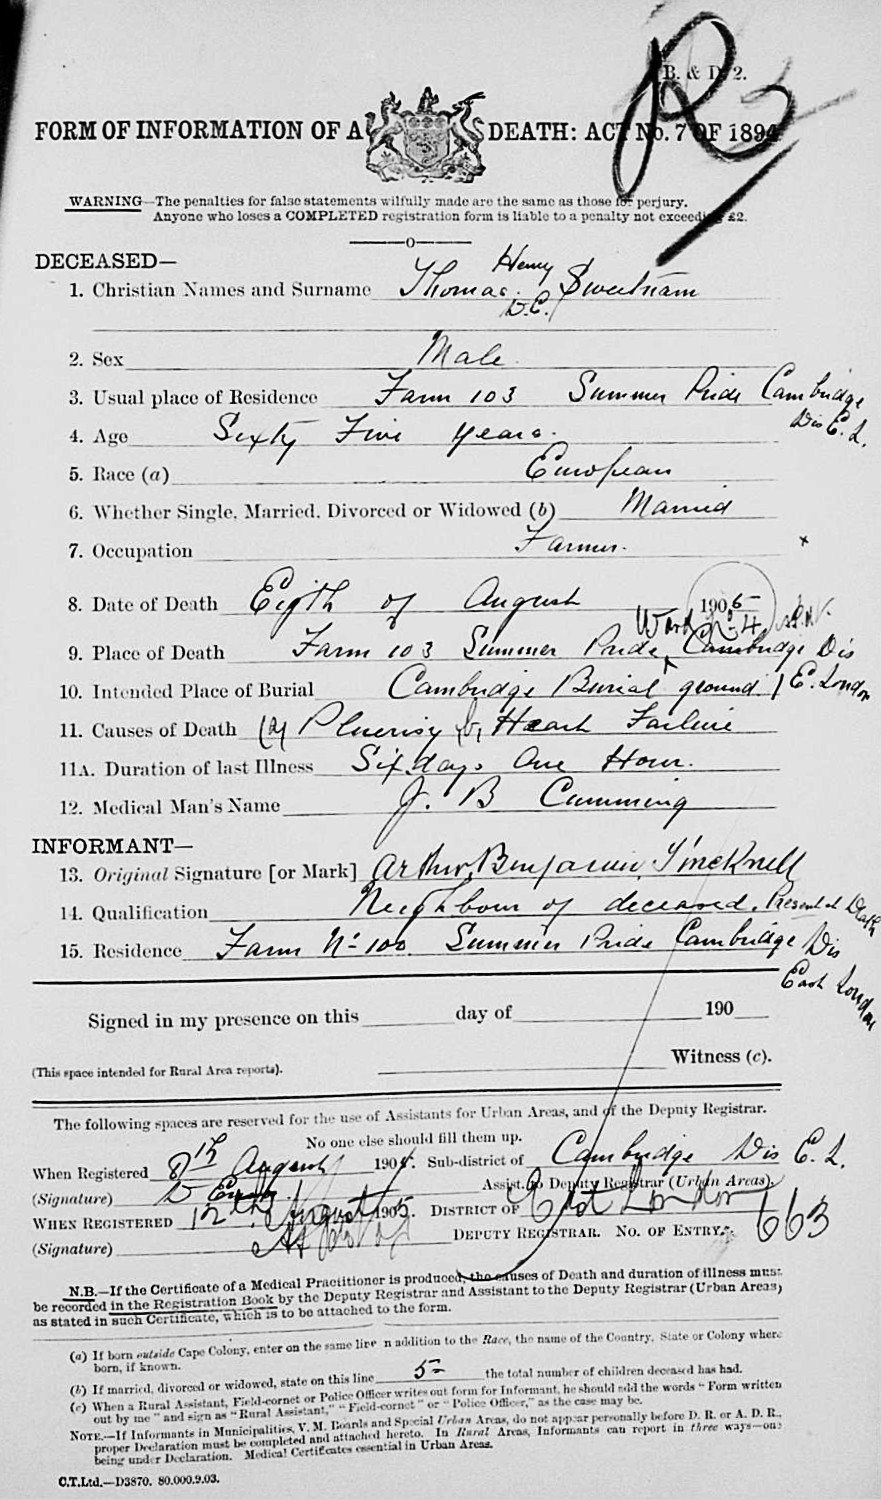 B. & D. 2.
FORM OF INFORMATION OF A DEATH: ACT No. 7 OF 1894
WARNING—The penalties for false statements wilfully made are the same as those for perjury.
Anyone who loses a COMPLETED registration form is liable to a penalty not exceeding £2.
DECEASED—
Henry
1. Christian Names and Surname Thomas Sweetnam
D.E.
2. Sex Male.
3. Usual place of Residence Farm 103 Summer Pride Cambridge
Dis E. L.
4. Age Sixty Five years.
5. Race (a) European
6. Whether Single, Married, Divorced or Widowed (b) Married
7. Occupation Farmer. x
8. Date of Death Eigth of August 1905
Ward No 4
9. Place of Death Farm 103 Summer Pride Cambridge Dis
10. Intended Place of Burial Cambridge Burial ground E. London
11. Causes of Death (a) Pluerisy (b) Heart Failure
11A. Duration of last Illness Six days One Hour.
12. Medical Man's Name J. B Cumming
INFORMANT—
13. Original Signature [or Mark] Arthur Benjamin Tincknell
14. Qualification Neighbour of deceased. Present at Death
15. Residence Farm No 100 Summer Pride Cambridge Dis
East London
Signed in my presence on this day of 190
Witness (c).
(This space intended for Rural Area reports).
The following spaces are reserved for the use of Assistants for Urban Areas, and of the Deputy Registrar.
No one else should fill them up.
When Registered 8th August 190 Sub-district of Cambridge Dis E. L.
(Signature) Assist. to Deputy Registrar (Urban Areas).
WHEN REGISTERED 12th August 1905. DISTRICT OF East London
(Signature) DEPUTY REGISTRAR. NO. OF ENTRY 663
N.B.—If the Certificate of a Medical Practitioner is produced, the causes of Death and duration of illness must
be recorded in the Registration Book by the Deputy Registrar and Assistant to the Deputy Registrar (Urban Areas)
as stated in such Certificate, which is to be attached to the form.
(a) If born outside Cape Colony, enter on the same line in addition to the Race, the name of the Country, State or Colony where
born, if known.
(b) If married, divorced or widowed, state on this line 5 the total number of children deceased has had.
(c) When a Rural Assistant, Field-cornet or Police Officer writes out form for Informant, he should add the words "Form written
out by me" and sign as "Rural Assistant," "Field-cornet" or "Police Officer," as the case may be.
NOTE.—If Informants in Municipalities, V. M. Boards and Special Urban Areas, do not appear personally before D. R. or A. D. R.,
proper Declaration must be completed and attached hereto. In Rural Areas, Informants can report in three ways—one
being under Declaration. Medical Certificates essential in Urban Areas.
C.T.Ltd.—D3870. 80.000.9.03.